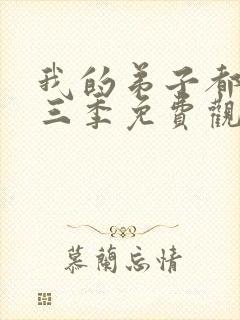 我的弟子都
三季免費觀
慕蘭忘情